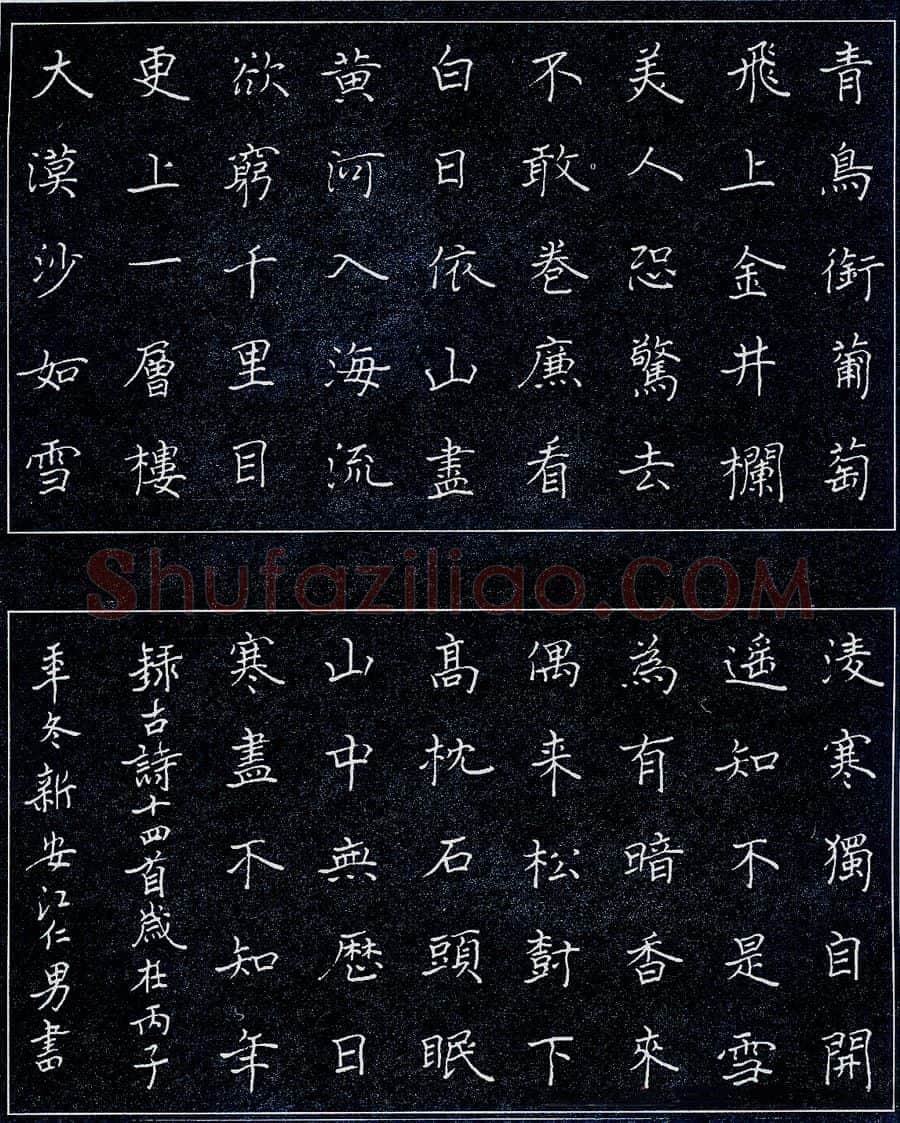 青鳥銜葡萄
飛上金井欄
美人恐驚去
不敢卷廉看
白日依山盡
黃河入海流
欲窮千里目
更上一層樓
大漠沙如雪
Shufaziliao.COM
淩寒獨自開
遥知不是雪
為有暗香來
偶来松對下
高枕石頭眠
山中無歷日
寒盡不知年
録古詩十四首歲在丙子
年冬新安江仁男書